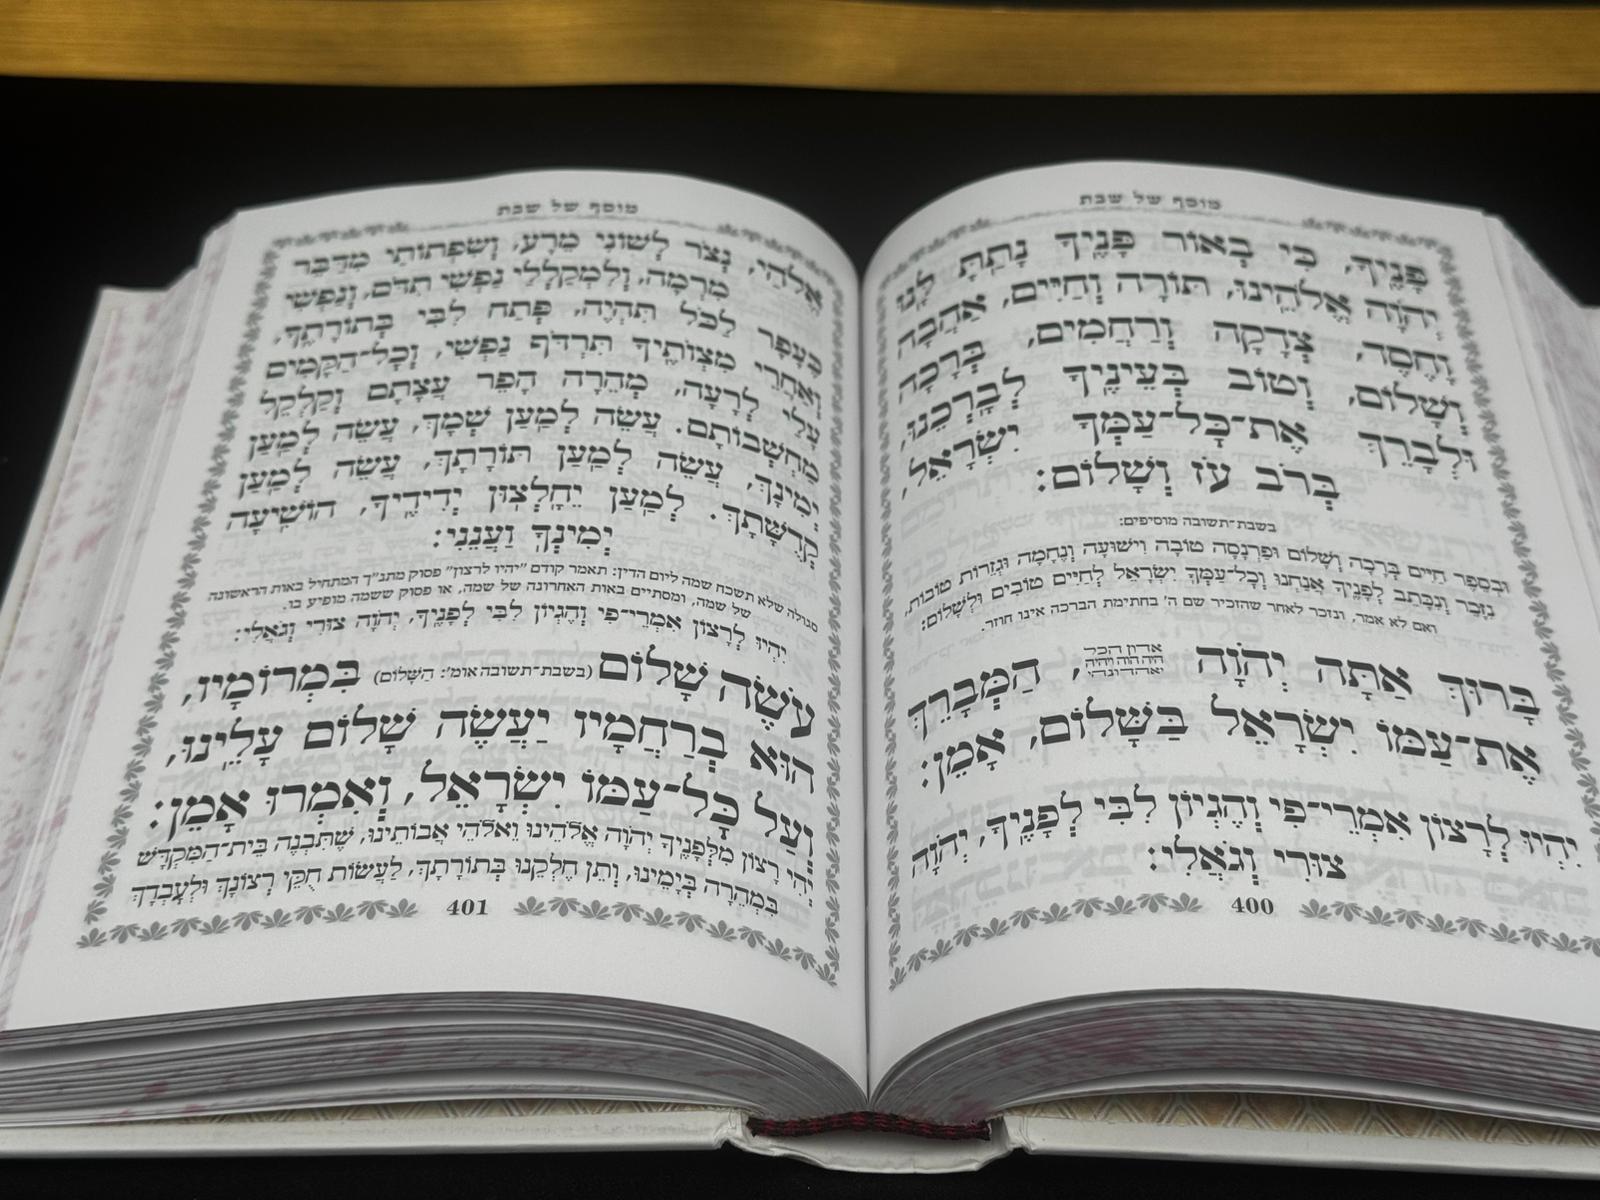 מוסף של שבת
פָּנֶיךָ, כִּי בְאוֹר פָּנֶיךָ נָתַתָּ לָּנוּ
יְהֹוָה אֱלֹהֵינוּ, תּוֹרָה וְחַיִּים, אַהֲבָה
וָחֶסֶד, צְדָקָה וְרַחֲמִים, בְּרָכָה
וְשָׁלוֹם, וְטוֹב בְּעֵינֶיךָ לְבָרְכֵנוּ,
וּלְבָרֵךְ אֶת־כָּל־עַמְּךָ יִשְׂרָאֵל,
בְּרֹב עֹז וְשָׁלוֹם:
בשבת־תשובה מוסיפים:
וּבְסֵפֶר חַיִּים בְּרָכָה וְשָׁלוֹם וּפַרְנָסָה טוֹבָה וִישׁוּעָה וְנֶחָמָה וּגְזֵרוֹת טוֹבוֹת,
נִזָּכֵר וְנִכָּתֵב לְפָנֶיךָ אֲנַחְנוּ וְכָל־עַמְּךָ יִשְׂרָאֵל לְחַיִּים טוֹבִים וּלְשָׁלוֹם:
ואם לא אמר, ונזכר לאחר שהזכיר שם ה' בחתימת הברכה אינו חוזר.
בָּרוּךְ אַתָּה יְהֹוָה אדון הכל היה הוה ויהיה יאהדונהי, הַמְּבָרֵךְ
אֶת־עַמּוֹ יִשְׂרָאֵל בַּשָּׁלוֹם, אָמֵן:
יִהְיוּ לְרָצוֹן אִמְרֵי־פִי וְהֶגְיוֹן לִבִּי לְפָנֶיךָ, יְהֹוָה
צוּרִי וְגֹאֲלִי:
400
מוסף של שבת
אֱלֹהַי, נְצֹר לְשׁוֹנִי מֵרָע, וְשִׂפְתוֹתַי מִדַּבֵּר
מִרְמָה, וְלִמְקַלְלַי נַפְשִׁי תִדֹּם, וְנַפְשִׁי
כֶּעָפָר לַכֹּל תִּהְיֶה, פְּתַח לִבִּי בְּתוֹרָתֶךָ,
וְאַחֲרֵי מִצְוֹתֶיךָ תִּרְדֹּף נַפְשִׁי, וְכָל־הַקָּמִים
עָלַי לְרָעָה, מְהֵרָה הָפֵר עֲצָתָם וְקַלְקֵל
מַחְשְׁבוֹתָם. עֲשֵׂה לְמַעַן שְׁמָךְ, עֲשֵׂה לְמַעַן
יְמִינָךְ, עֲשֵׂה לְמַעַן תּוֹרָתָךְ, עֲשֵׂה לְמַעַן
קְדֻשָּׁתָךְ. לְמַעַן יֵחָלְצוּן יְדִידֶיךָ, הוֹשִׁיעָה
יְמִינְךָ וַעֲנֵנִי:
סגולה שלא תשכח שמה ליום הדין: תאמר קודם "יהיו לרצון" פסוק מתנ"ך המתחיל באות הראשונה
של שמה, ומסתיים באות האחרונה של שמה, או פסוק ששמה מופיע בו.
יִהְיוּ לְרָצוֹן אִמְרֵי־פִי וְהֶגְיוֹן לִבִּי לְפָנֶיךָ, יְהֹוָה צוּרִי וְגֹאֲלִי:
עֹשֶׂה שָׁלוֹם (בשבת־תשובה אומ': הַשָּׁלוֹם) בִּמְרוֹמָיו,
הוּא בְרַחֲמָיו יַעֲשֶׂה שָׁלוֹם עָלֵינוּ,
וְעַל כָּל־עַמּוֹ יִשְׂרָאֵל, וְאִמְרוּ אָמֵן:
יְהִי רָצוֹן מִלְּפָנֶיךָ יְהֹוָה אֱלֹהֵינוּ וֵאלֹהֵי אֲבוֹתֵינוּ, שֶׁתִּבְנֶה בֵּית־הַמִּקְדָּשׁ
בִּמְהֵרָה בְיָמֵינוּ, וְתֵן חֶלְקֵנוּ בְּתוֹרָתָךְ, לַעֲשׂוֹת חֻקֵּי רְצוֹנָךְ וּלְעָבְדָךְ
401